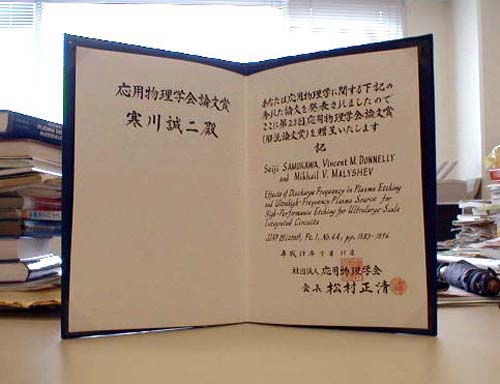 応用物理学会論文賞
寒川誠二殿
あなたは応用物理学に関する下記の
優れた論文を発表されましたので
ここに第23回応用物理学会論文賞
(解説論文賞)を贈呈いたします
記
Seiji SAMUKAWA, Vincent M. DONNELLY
and Mikhail V. MALYSHEV
Effects of Discharge Frequency in Plasma Etching
and Ultrahigh-Frequency Plasma Source for
High-Performance Etching for Ultralarge-Scale
Integrated Circuits
JJAP 39 (2000), Pt. 1, No. 4A, pp. 1583-1596
平成
社団法人 応用物理学会
会長 松村正清